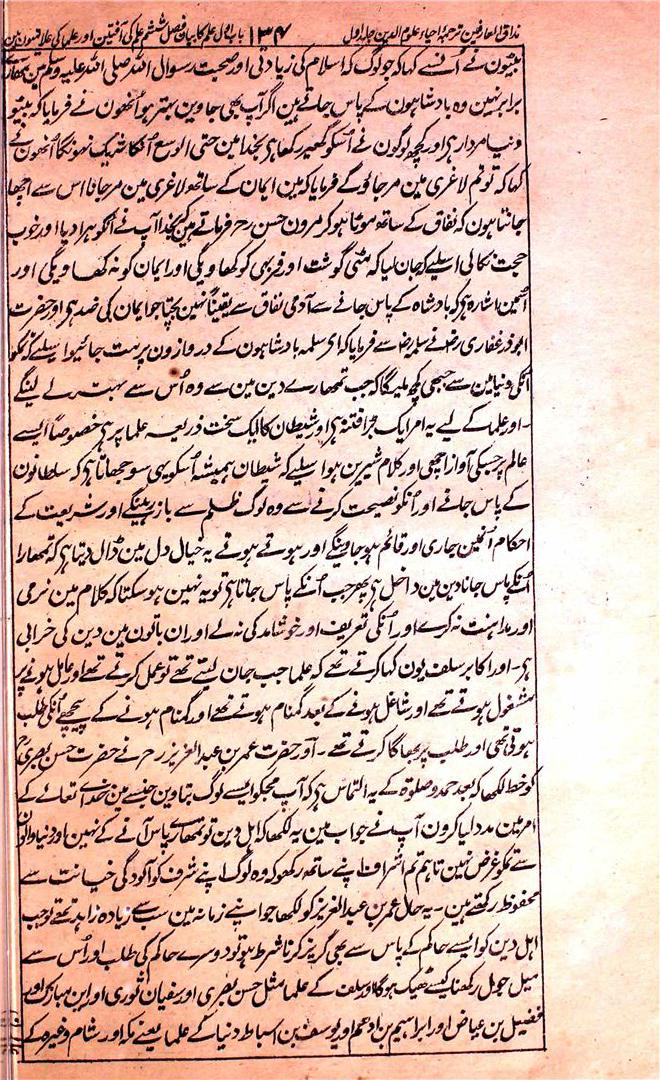 مذاق العارفین ترجمۂ احیاء علوم الدین جلد اول ۱۳۴ باب اول علم کا بیان فصل ششم علم کی آفتین اور علما کی علامتون مین
بیٹون نے اُنسے کہا کہ جو لوگ کہ اسلام کی زیادتی اور صحبت رسول اللہ صلی اللہ علیہ وسلم مین تمھارے
برابر نہین وہ بادشاہون کے پاس جاتے ہین اگر آپ بھی جاوین بہتر ہو اُنھون نے فرمایا کہ بیٹو
دنیا مردار ہی اور کچھ لوگون نے اُسکو گھیر رکھا ہی بخدا مین حتی الوسع اُنکا شریک نہونگا اُنھون نے
کہا کہ تو تم لاغری مین مر جاؤگے فرمایا کہ مین ایمان کے ساتھ لاغری مین مر جانا اس سے اچھا
جانتا ہون کہ نفاق کے ساتھ موٹا ہو کر مرون حسن رح فرماتے ہین کہ بخدا آپ نے اُنکو ہرا دیا اور خوب
حجت نکالی اسلیے کہ جان لیا کہ مٹی گوشت اور فربہی کو کھاویگی اور ایمان کو نہ کھاویگی اور
اسمین اشارہ ہی کہ بادشاہ کے پاس جانے سے آدمی نفاق سے یقیناً نہین بچتا جو ایمان کی ضد ہی اور حضرت
ابوذر غفاری رض نے سلمہ رض سے فرمایا کہ ای سلمہ بادشاہون کے دروازون پر مت جائیو اسلیے کہ تمکو
اُنکی دنیا مین سے جبھی کچھ ملیگا کہ جب تمھارے دین مین سے وہ اُس سے بہتر لے لینگے
۔اور علما کے لیے یہ امر ایک بڑا فتنہ ہی اور شیطان کا ایک سخت ذریعہ علما پر ہی خصوصاً ایسے
عالم پر جسکی آواز اچھی اور کلام شیرین ہو اسلیے کہ شیطان ہمیشہ اُسکو یہی سوجھاتا ہی کہ سلطانون
کے پاس جانے اور اُنکو نصیحت کرنے سے وہ لوگ ظلم سے باز رہینگے اور شریعت کے
احکام اُنمین جاری اور قائم ہو جاوینگے اور ہوتے ہوتے یہ خیال دل مین ڈال دیتا ہی کہ تمھارا
اُنکے پاس جانا دین مین داخل ہی پھر جب اُنکے پاس جاتا ہی تو یہ نہین ہو سکتا کہ کلام مین نرمی
اور مداہنت نہ کرے اور اُنکی تعریف اور خوشامد کی نہ لے اور ان باتون مین دین کی خرابی
ہی۔اور اکابر سلف یون کہا کرتے تھے کہ علما جب جان لیتے تھے تو عمل کرتے تھے اور عامل ہونے پر
مشغول ہوتے تھے اور شاغل ہونے کے بعد گمنام ہوتے تھے اور گمنام ہونے کے پیچھے اُنکی طلب
ہوتی تھی اور طلب پر بھاگا کرتے تھے۔اور حضرت عمر بن عبد العزیز رح نے حضرت حسن بصری رح
کو خط لکھا کہ بعد حمد و صلوٰۃ کے یہ التماس ہی کہ آپ مجھکو ایسے لوگ بتاوین جنسے مین خدای تعالے کے
امر مین مدد لیا کرون آپ نے جواب مین یہ لکھا کہ اہل دین تو تمھارے پاس آنے کے نہین اور دنیا والون
سے تمکو غرض نہین تاہم تم اشراف اپنے ساتھ رکھو کہ وہ لوگ اپنے شرف کو آلودگی خیانت سے
محفوظ رکھتے ہین۔یہ حال عمر بن عبد العزیز کو لکھا جو اپنے زمانہ مین سب سے زیادہ زاہد تھے تو جب
اہل دین کو ایسے حاکم کے پاس سے بھی گریز کرنا شرط ہو تو دوسرے حاکم کی طلب اور اُس سے
میل جول رکھنا کیسے ٹھیک ہو گا اور سلف کے علما مثل حسن بصری اور سفیان ثوری اور ابن مبارک اور
فضیل بن عیاض اور ابراہیم بن ادہم اور یوسف بن اسباط دنیا کے علما یعنے مکہ اور شام وغیرہ کے